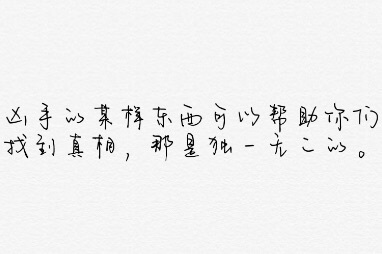 凶手的某样东西可以帮助你们
找到真相，那是独一无二的。